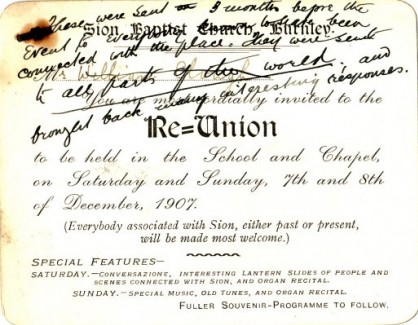 These were sent 3 months before the
event to every known to have been
connected with the place. They were sent
to all parts of the world, and
brought back many interesting responses.
Sion Baptist Church, Burnley.
You are most cordially invited to the
Re=Union
to be held in the School and Chapel,
on Saturday and Sunday, 7th and 8th
of December, 1907.
(Everybody associated with Sion, either past or present,
will be made most welcome.)
SPECIAL FEATURES—
SATURDAY.—CONVERSAZIONE, INTERESTING LANTERN SLIDES OF PEOPLE AND
SCENES CONNECTED WITH SION, AND ORGAN RECITAL.
SUNDAY.—SPECIAL MUSIC, OLD TUNES, AND ORGAN RECITAL.
FULLER SOUVENIR-PROGRAMME TO FOLLOW.